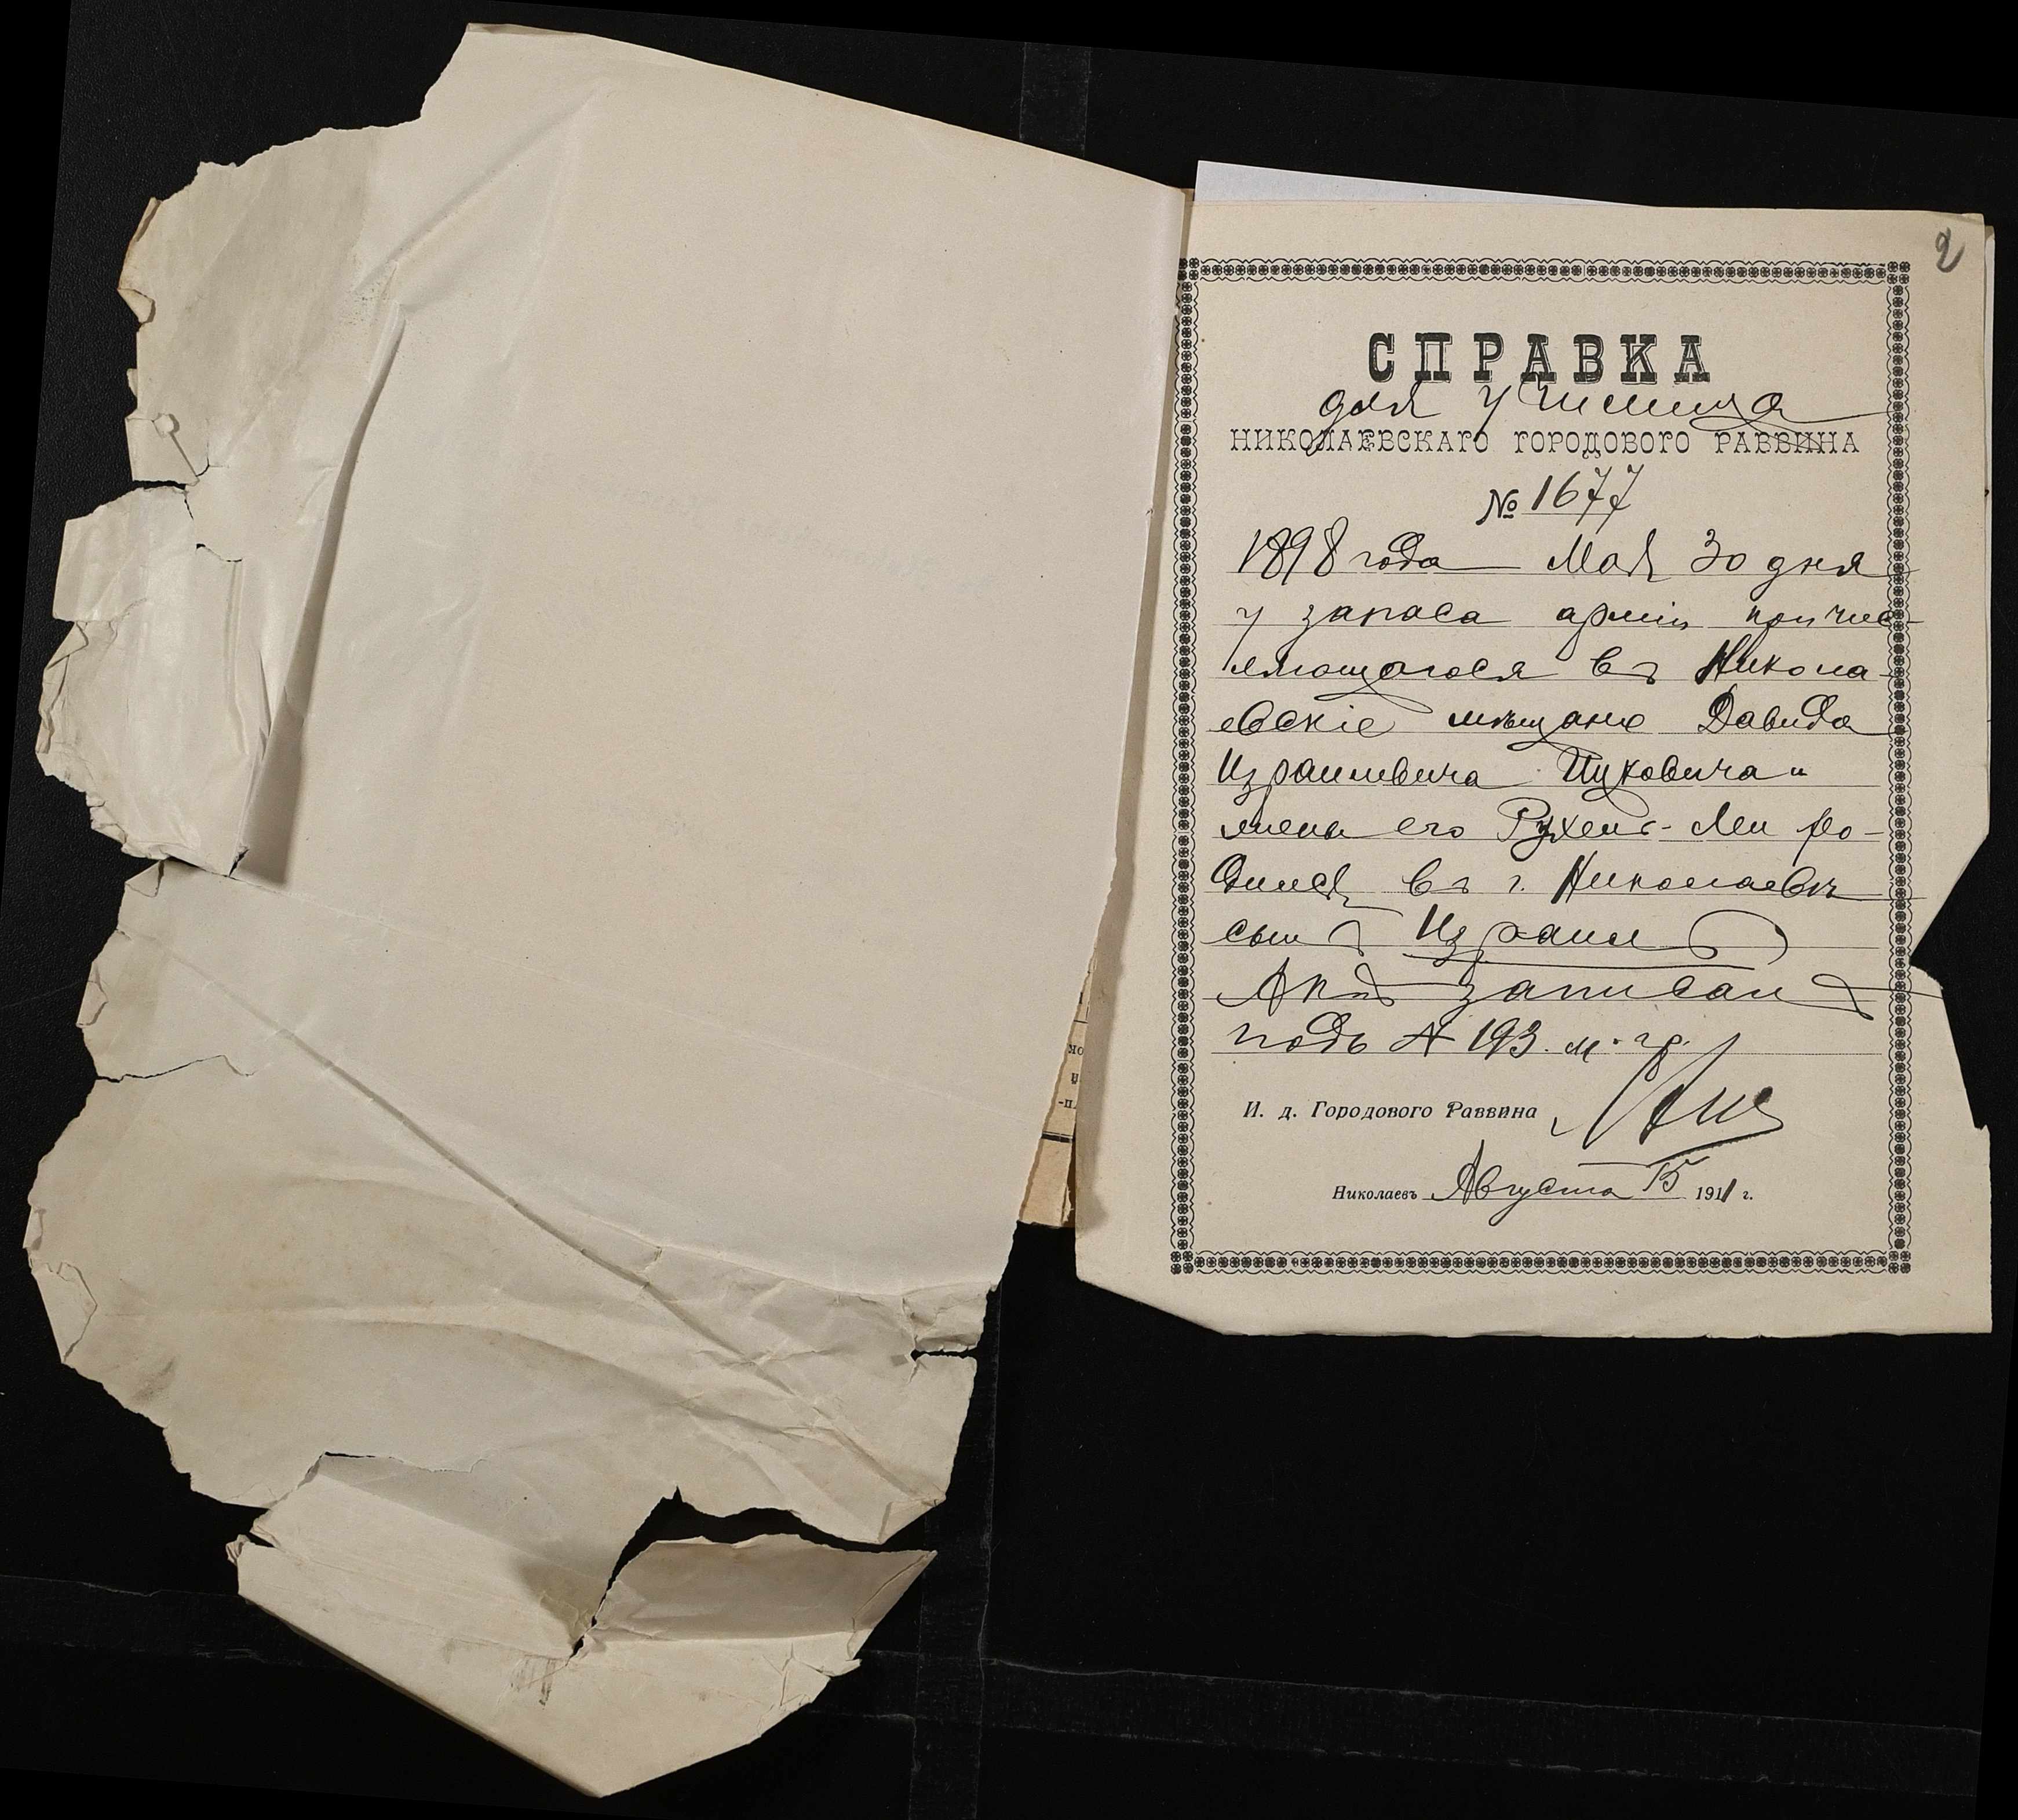 2
СПРАВКА
для училища
НИКОЛАЕВСКАГО ГОРОДОВОГО РАВВИНА
№ 1677
1898 года Мая 30 дня
у запаса арміи причис-
ляющагося въ Никола-
евскіе мѣщане Давида
Израилевича Ицковича и
жены его Рухель-Леи ро-
дился въ г. Николаевѣ
сынъ Израиль
Актъ записанъ
подъ № 193 м. гр.
И. д. Городового Раввина
Николаевъ Августа 15 1911 г.